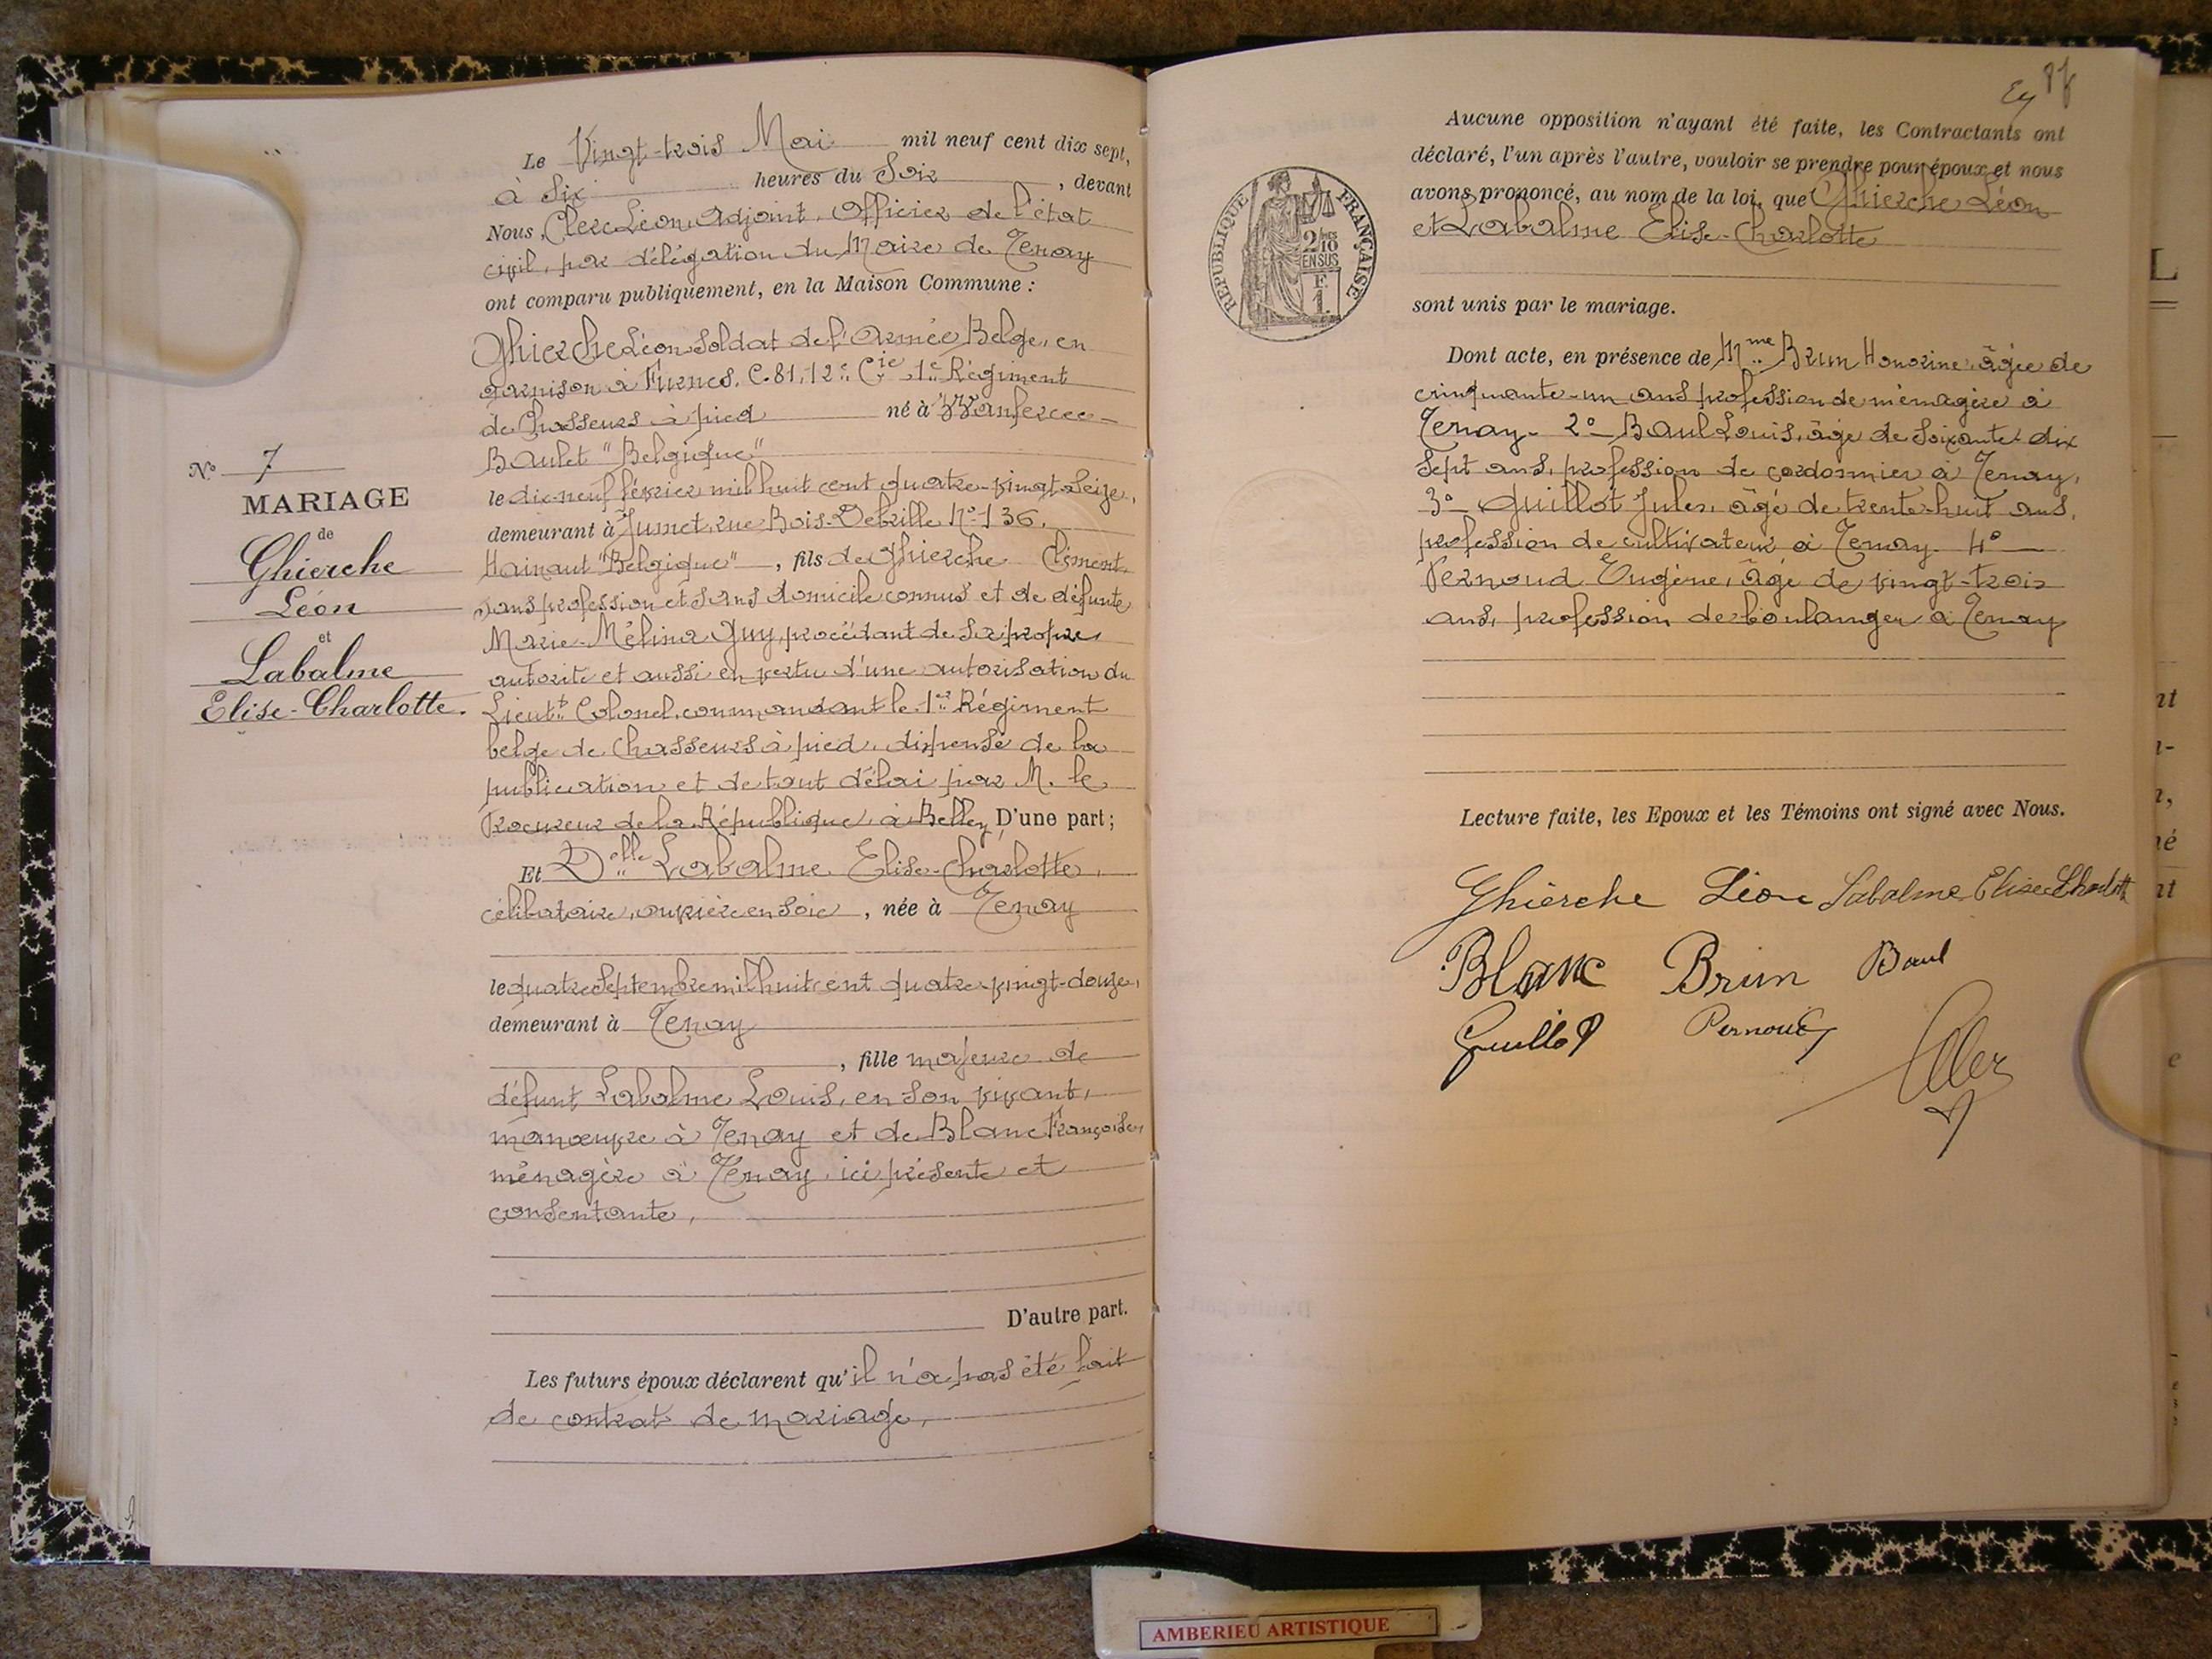 Le Vingt-trois Mai mil neuf cent dix sept,
à six heures du Soir, devant
Nous, Clerc Léon, adjoint, Officier de l'état
civil, par délégation du Maire de Tenay
ont comparu publiquement, en la Maison Commune :
Ghierche Léon Soldat de l'armée Belge, en
garnison à Furnes. C.81, 12e Cie, 1e Régiment
de Chasseurs à pied né à Wanfercee-
Baulet "Belgique"
le dix-neuf février mil huit cent quatre-vingt-seize,
demeurant à Jumet, rue Bois-Delville No 136,
Hainaut "Belgique", fils de Ghierche Clément,
sans profession et sans domicile connus et de défunte
Marie-Mélina Guy, procédant de sa propre
autorité et aussi en vertu d'une autorisation du
Lieutt Colonel, commandant le 1er Régiment
belge de Chasseurs à pied, dispensé de la
publication et de tout délai par M. le
Procureur de la République, à Belley, D'une part ;
Et Delle Labalme Elise-Charlotte,
célibataire, ouvrière en soie, née à Tenay
le quatre Septembre mil huit cent quatre-vingt-douze,
demeurant à Tenay
, fille majeure de
défunt Labalme Louis, en son vivant,
manœuvre à Tenay et de Blanc Françoise,
ménagère à Tenay, ici présente et
consentante,
D'autre part.
Les futurs époux déclarent qu'il n'a pas été fait
de contrat de mariage,
No 7
MARIAGE
de
Ghierche
Léon
et
Labalme
Elise-Charlotte.
87
REPUBLIQUE FRANÇAISE
2/10 EN SUS
F. 1
Aucune opposition n'ayant été faite, les Contractants ont
déclaré, l'un après l'autre, vouloir se prendre pour époux et nous
avons prononcé, au nom de la loi, que Ghierche Léon
et Labalme Elise-Charlotte
sont unis par le mariage.
Dont acte, en présence de Mme Brun Honorine, âgée de
cinquante-un ans profession de ménagère à
Tenay- 2o- Baul Louis, âgé de soixante-dix
sept ans, profession de cordonnier à Tenay,
3o- Guillot Jules, âgé de trente-huit ans,
profession de cultivateur à Tenay- 4o-
Pernoud Eugène, âgé de vingt-trois
ans, profession de boulanger à Tenay
Lecture faite, les Epoux et les Témoins ont signé avec Nous.
Ghierche Léon Labalme Elise Charlotte
Blanc Brun Baul
Guillot Pernoud
AMBERIEU ARTISTIQUE